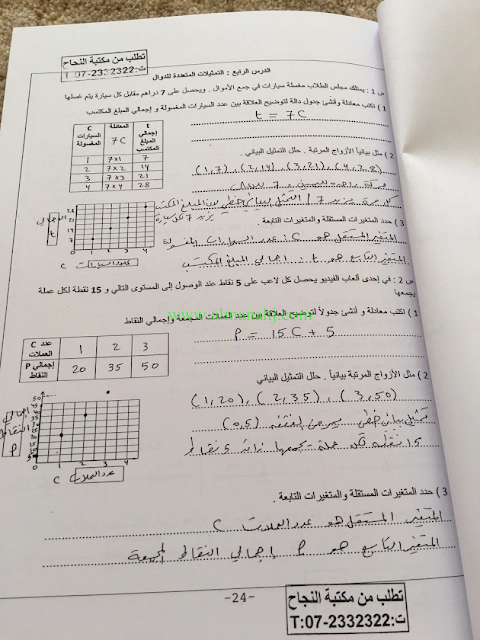 تطلب من مكتبة النجاح
ت:07-2332322:T
الدرس الرابع : التمثيلات المتعددة للدوال
س 1 : يمتلك مجلس الطلاب مغسلة سيارات في جمع الأموال . ويحصل على 7 دراهم مقابل كل سيارة يتم غسلها
1 ) اكتب معادلة وأنشئ جدول دالة لتوضيح العلاقة بين عدد السيارات المغسولة و إجمالي المبلغ المكتسب
t = 7C
C السيارات المغسولة | المعادلة 7C | t إجمالي المبلغ المكتسب
1 | 7×1 | 7
2 | 7×2 | 14
3 | 7×3 | 21
4 | 7×4 | 28
2 ) مثل بيانياً الأزواج المرتبة . حلل التمثيل البياني .
(1,7), (2,14), (3,21), (4,28)
3 ) حدد المتغيرات المستقلة و المتغيرات التابعة .
المتغير المستقل هو C : عدد السيارات المغسولة
المتغير التابع هو t : إجمالي المبلغ المكتسب
إجمالي المبلغ t
28
21
14
7
1 2 3 4
عدد السيارات C
س 2 : في إحدى ألعاب الفيديو يحصل كل لاعب على 5 نقاط عند الوصول إلى المستوى التالي و 15 نقطة لكل عملة يجمعها
1 ) اكتب معادلة و أنشئ جدولاً لتوضيح العلاقة بين عدد العملات المجمعة وإجمالي النقاط
P = 15C + 5
عدد C العملات | 1 | 2 | 3
إجمالي P النقاط | 20 | 35 | 50
2 ) مثل الأزواج المرتبة بيانياً . حلل التمثيل البياني
(1,20), (2,35), (3,50)
تمثيل بياني خطي يمر من النقطة (0,5)
15 نقطة لكل عملة يجمعها زائد 5 نقاط
إجمالي النقاط P
عدد العملات C
3 ) حدد المتغيرات المستقلة و المتغيرات التابعة .
المتغير المستقل هو عدد العملات C
المتغير التابع هو P إجمالي النقاط المجمعة
-24-
تطلب من مكتبة النجاح
ت:07-2332322:T